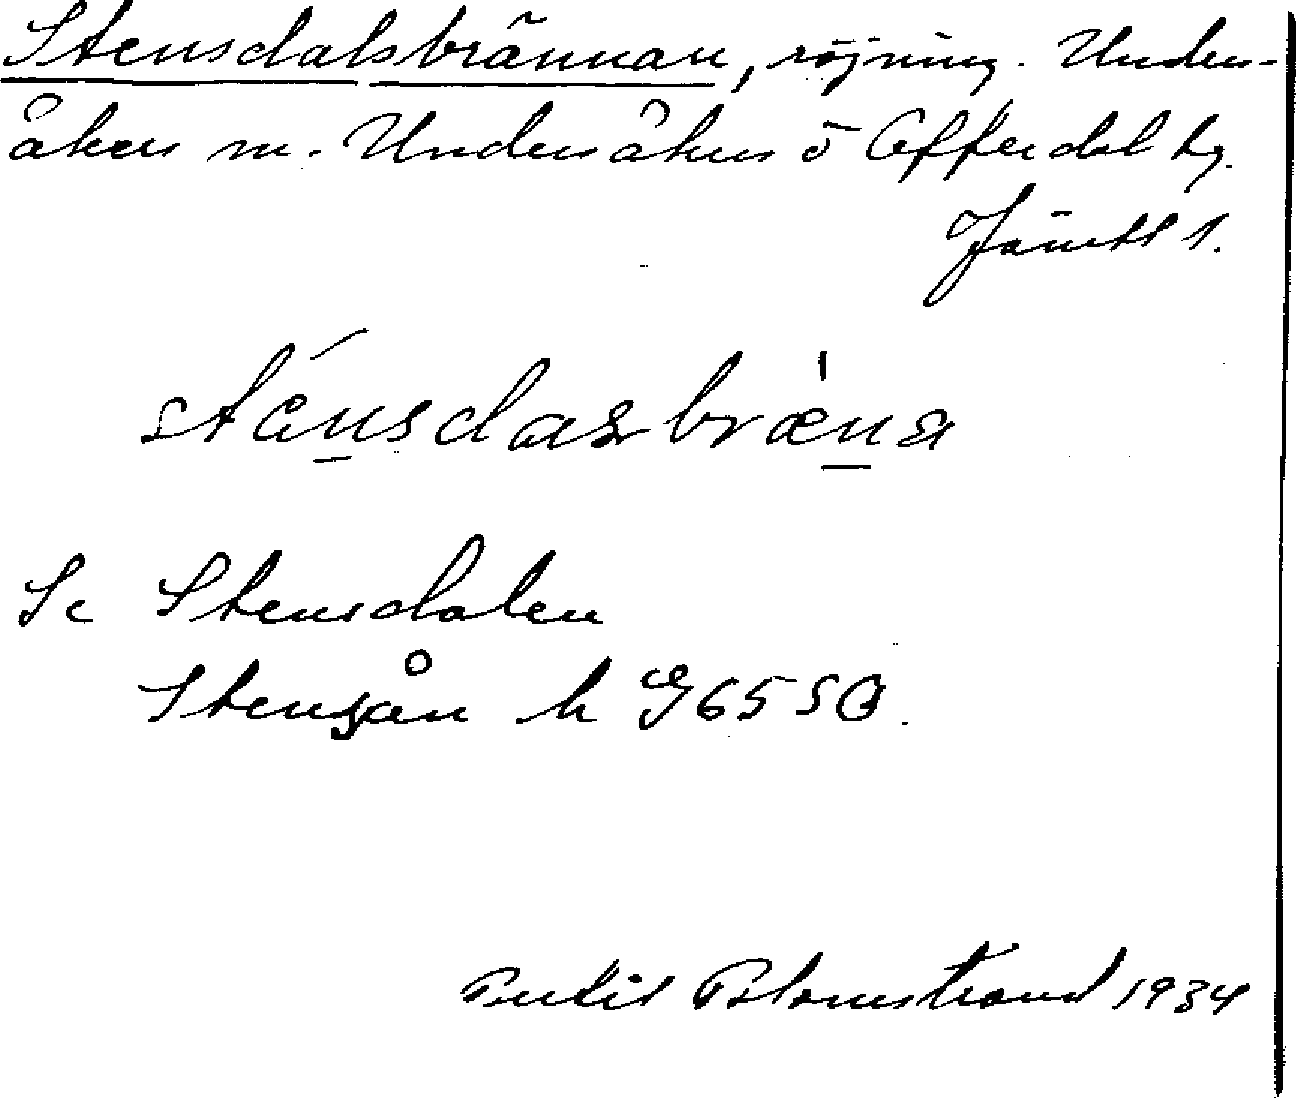 Stensdalsbrännan, röjning. Under-
åkers sn. Undersåkers o Offerdal tg.
Jämtl l.
sténsdasbræna
Se Stensdalen
Stensån h G65 50.
Bertil Blomstrand 1934